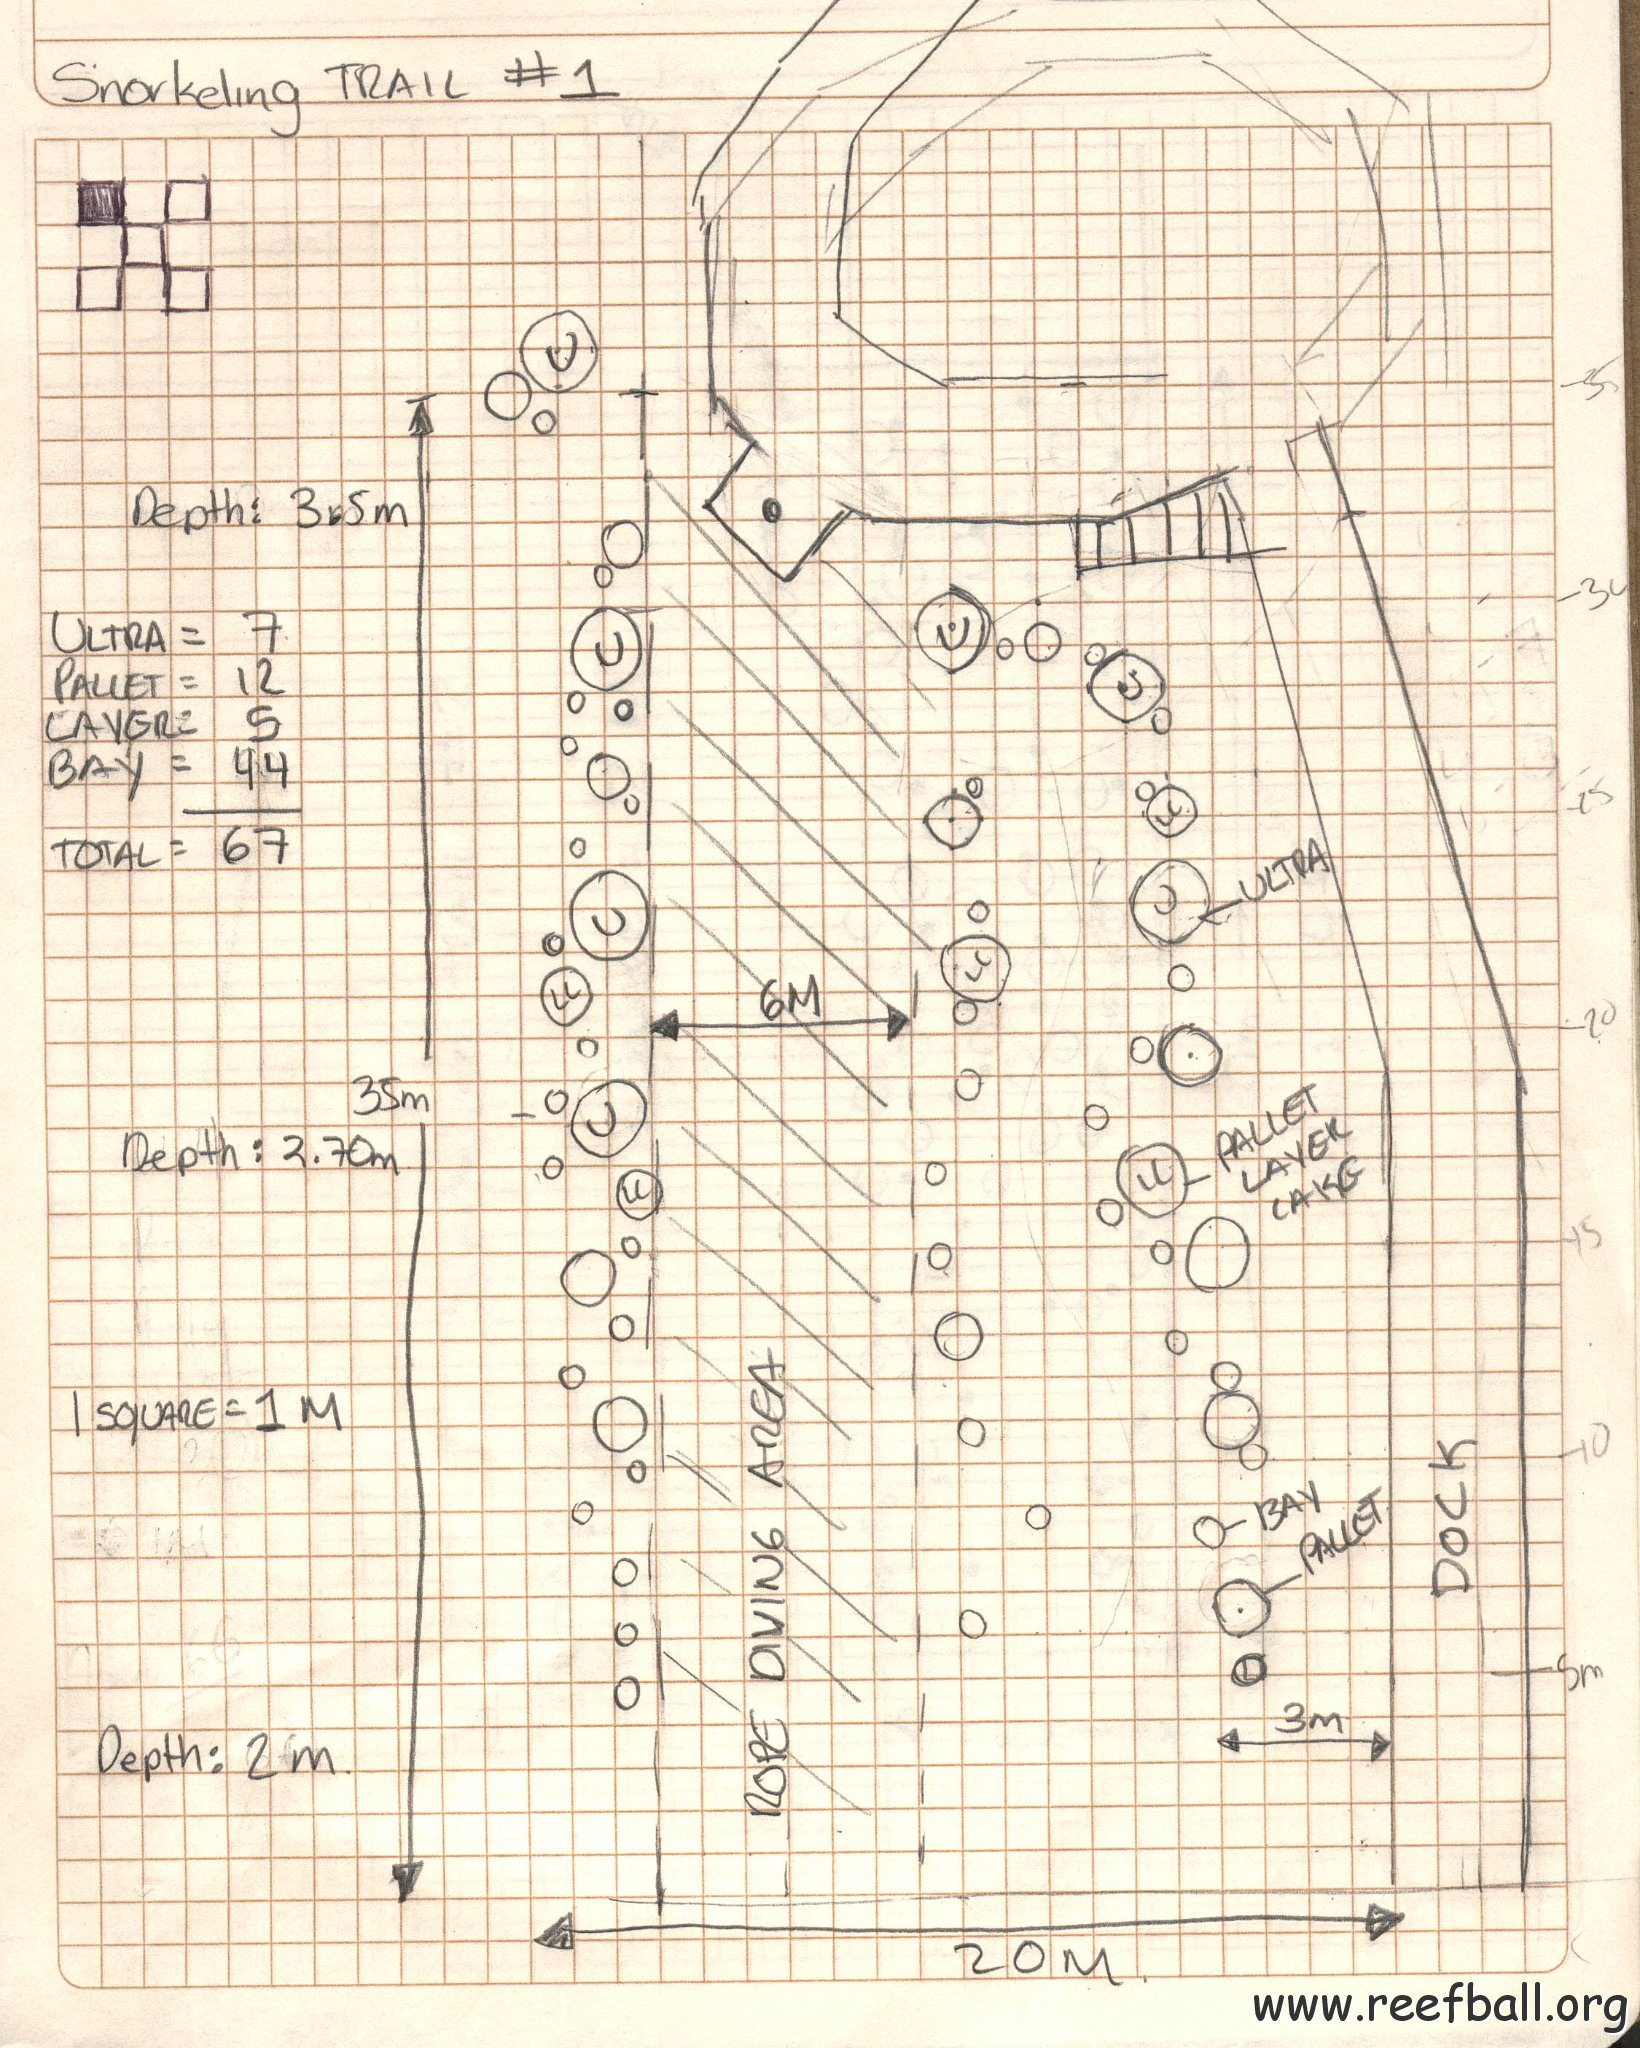 Snorkeling TRAIL #1
Depth: 3.5m
ULTRA = 7
PALLET = 12
LAYER = 5
BAY = 44
TOTAL = 67
35m
Depth: 2.70m
1 SQUARE = 1 M
Depth: 2 m.
U
U
U
U
LL
U
LL
U
U
LL
LL
U
LL
ULTRA
6M
PALLET
LAYER
CAKE
BAY
PALLET
ROPE DIVING AREA
DOCK
3m
20M.
-35
-30
-25
-20
-15
-10
5m
www.reefball.org